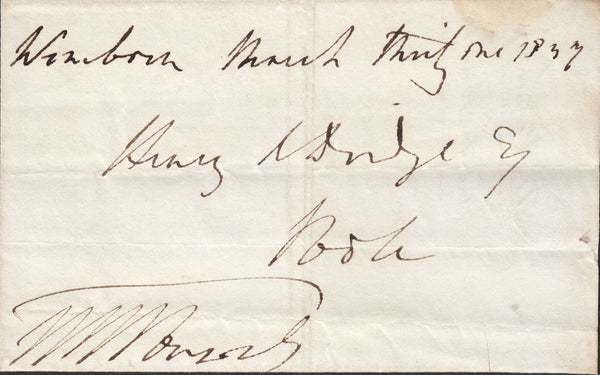 Wimborn March thirty one 1837
Henry Esq
Poole